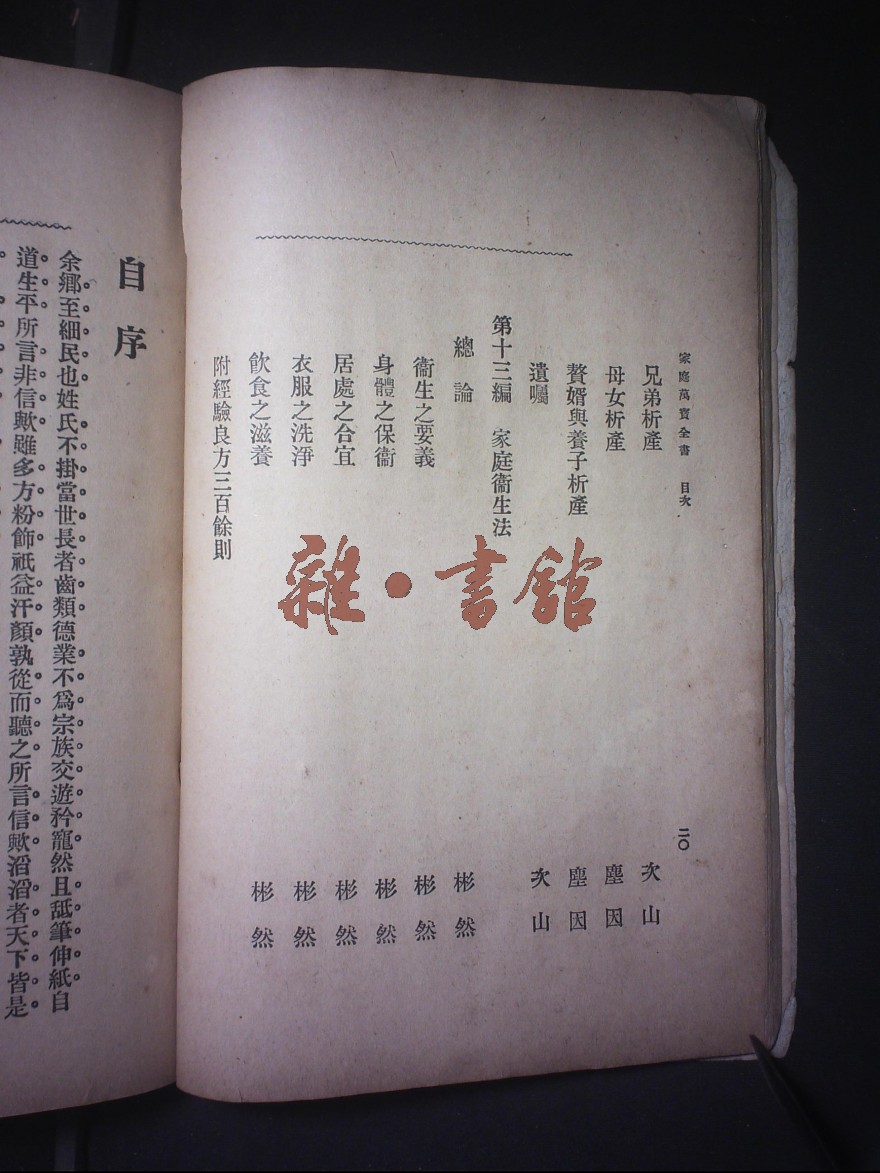 家庭萬寶全書 目次 二〇
兄弟析產 次山
母女析產 塵因
贅婿與養子析產 塵因
遺囑 次山
第十三編 家庭衞生法
總論 彬然
衞生之要義 彬然
身體之保衞 彬然
居處之合宜 彬然
衣服之洗淨 彬然
飲食之滋養 彬然
附經驗良方三百餘則
雜·書館
自序
余鄉至細民也姓氏不掛當世長者齒類德業不爲宗族交遊矜寵然且舐筆伸紙自
道生平所言非信歟雖多方粉飾祇益汗顏孰從而聽之所言信歟滔滔者天下皆是